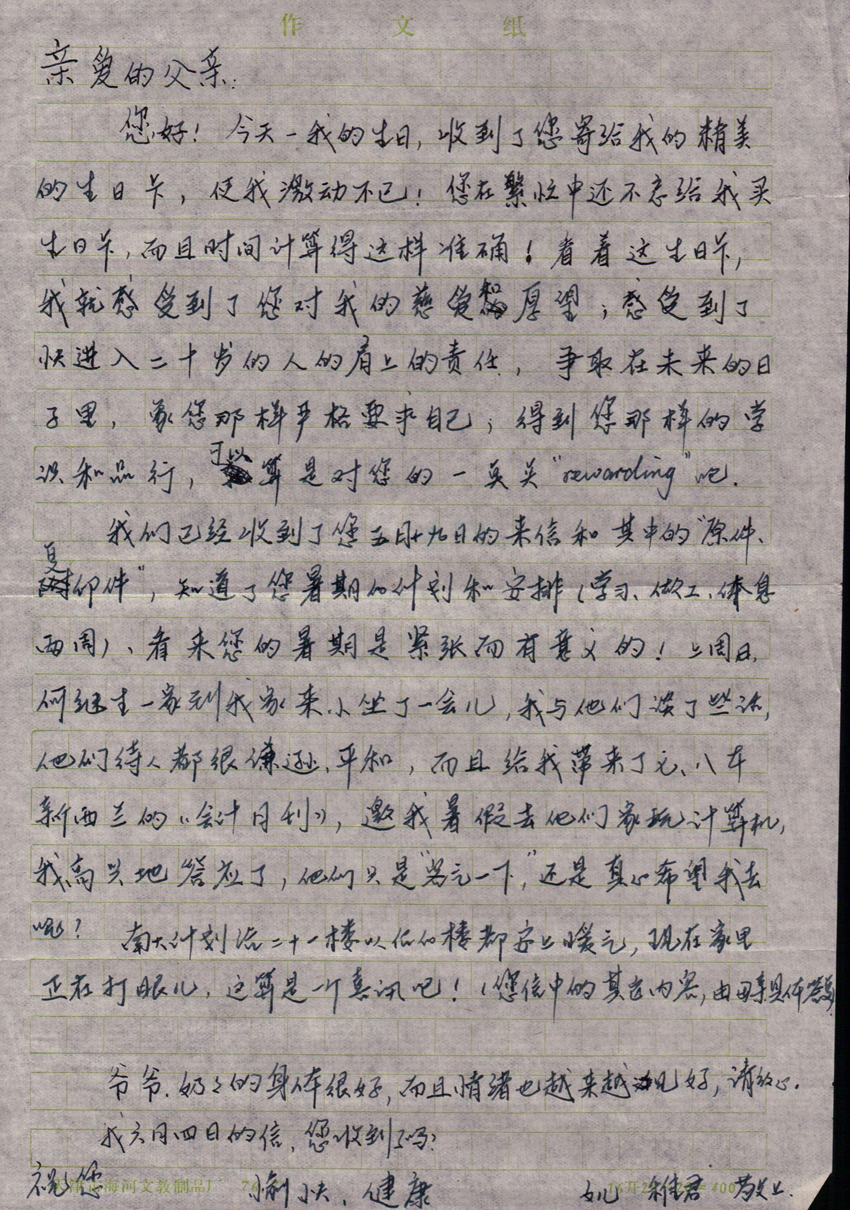 作文纸
亲爱的父亲:
您好!今天—我的生日,收到了您寄给我的精美
的生日卡,使我激动不已!您在繁忙中还不忘给我买
生日卡,而且时间计算得这样准确!看着这生日卡,
我就感受到了您对我的慈爱和厚望;感受到了
快进入二十岁的人的肩上的责任,争取在未来的日
子里,象您那样严格要求自己;得到您那样的学
识和品行,可以算是对您的一点“rewarding”吧.
我们已经收到了您五月十九日的来信和其中的“原件、
复印件”,知道了您暑期的计划和安排(学习、做工、休息
两周)、看来您的暑期是紧张而有意义的!上周日,
何继生一家到我家来小坐了一会儿,我与他们谈了些话,
他们待人都很谦逊、平和,而且给我带来了七、八本
新西兰的《会计月刊》,邀我暑假去他们家玩计算机,
我高兴地答应了,他们只是“客气一下,”还是真心希望我去
呢?南大计划给二十一楼以后的楼都安上暖气,现在家里
正在打眼儿,这算是一个喜讯吧!(您信中的其它内容,由母亲具体答复)
爷爷.奶々的身体很好,而且情绪也越来越见好,请放心.
我六月四日的信,您收到了吗?
祝您 愉快、健康 女儿 维君 敬上.
海河文教制品厂